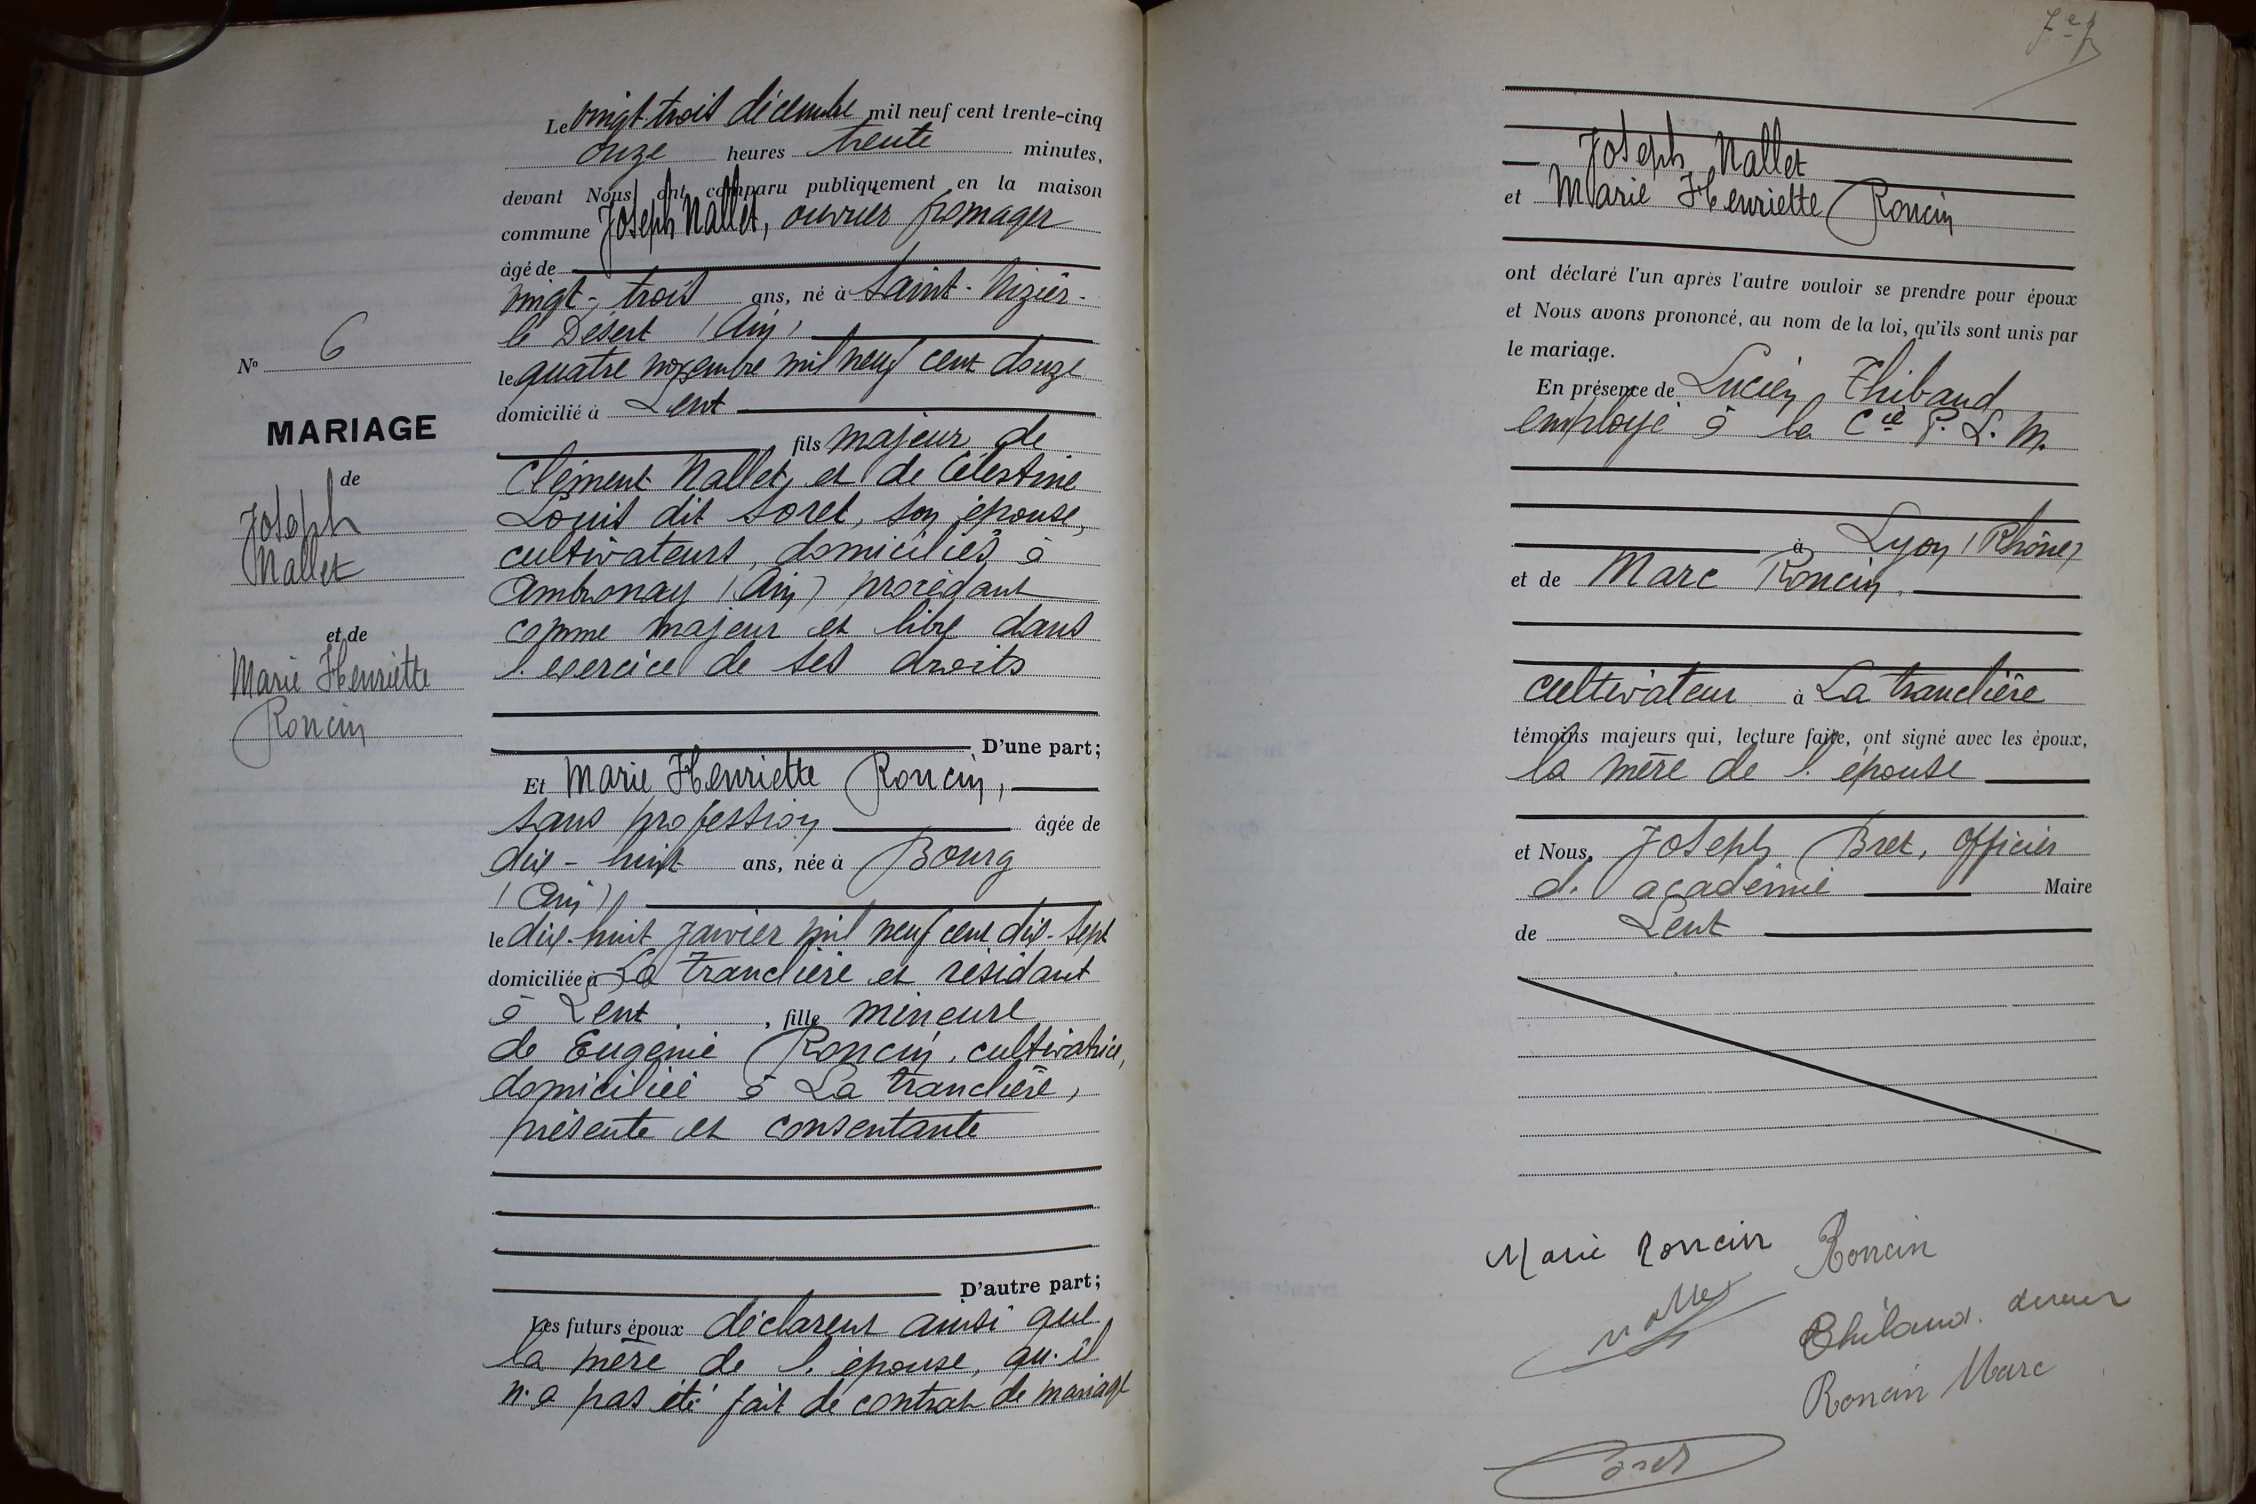 Nº 6
MARIAGE
de
Joseph
Nallet
et de
Marie Henriette
Roncin
Le vingt trois décembre mil neuf cent trente-cinq
onze heures trente minutes,
devant Nous ont comparu publiquement en la maison
commune Joseph Nallet, ouvrier fromager
âgé de
vingt-trois ans, né à Saint-Nizier-
le Désert (Ain)
le quatre novembre mil neuf cent douze
domicilié à Lent
fils majeur de
Clément Nallet, et de Célestine
Louis dit Soret, son épouse,
cultivateurs, domiciliés à
Ambronay (Ain) procédant
comme majeur et libre dans
l'exercice de ses droits
D'une part;
Et Marie Henriette Roncin,
sans profession âgée de
dix-huit ans, née à Bourg
(Ain)
le dix-huit janvier mil neuf cent dix-sept
domiciliée à La Tranclière et résidant
à Lent, fille mineure
de Eugénie Roncin, cultivatrice,
domiciliée à La Tranclière,
présente et consentante
D'autre part;
Les futurs époux déclarent ainsi que
la mère de l'épouse, qu'il
n'a pas été fait de contrat de mariage
Joseph Nallet
et Marie Henriette Roncin
ont déclaré l'un après l'autre vouloir se prendre pour époux
et Nous avons prononcé, au nom de la loi, qu'ils sont unis par
le mariage.
En présence de Lucien Thibaud
employé à la Cie P. L. M.
à Lyon (Rhône)
et de Marc Roncin
cultivateur à La Tranclière
témoins majeurs qui, lecture faite, ont signé avec les époux,
la mère de l'épouse
et Nous, Joseph Bret, officier
d'académie Maire
de Lent
Marie Roncin Roncin
Nallet
Thibaud
Roncin Marc